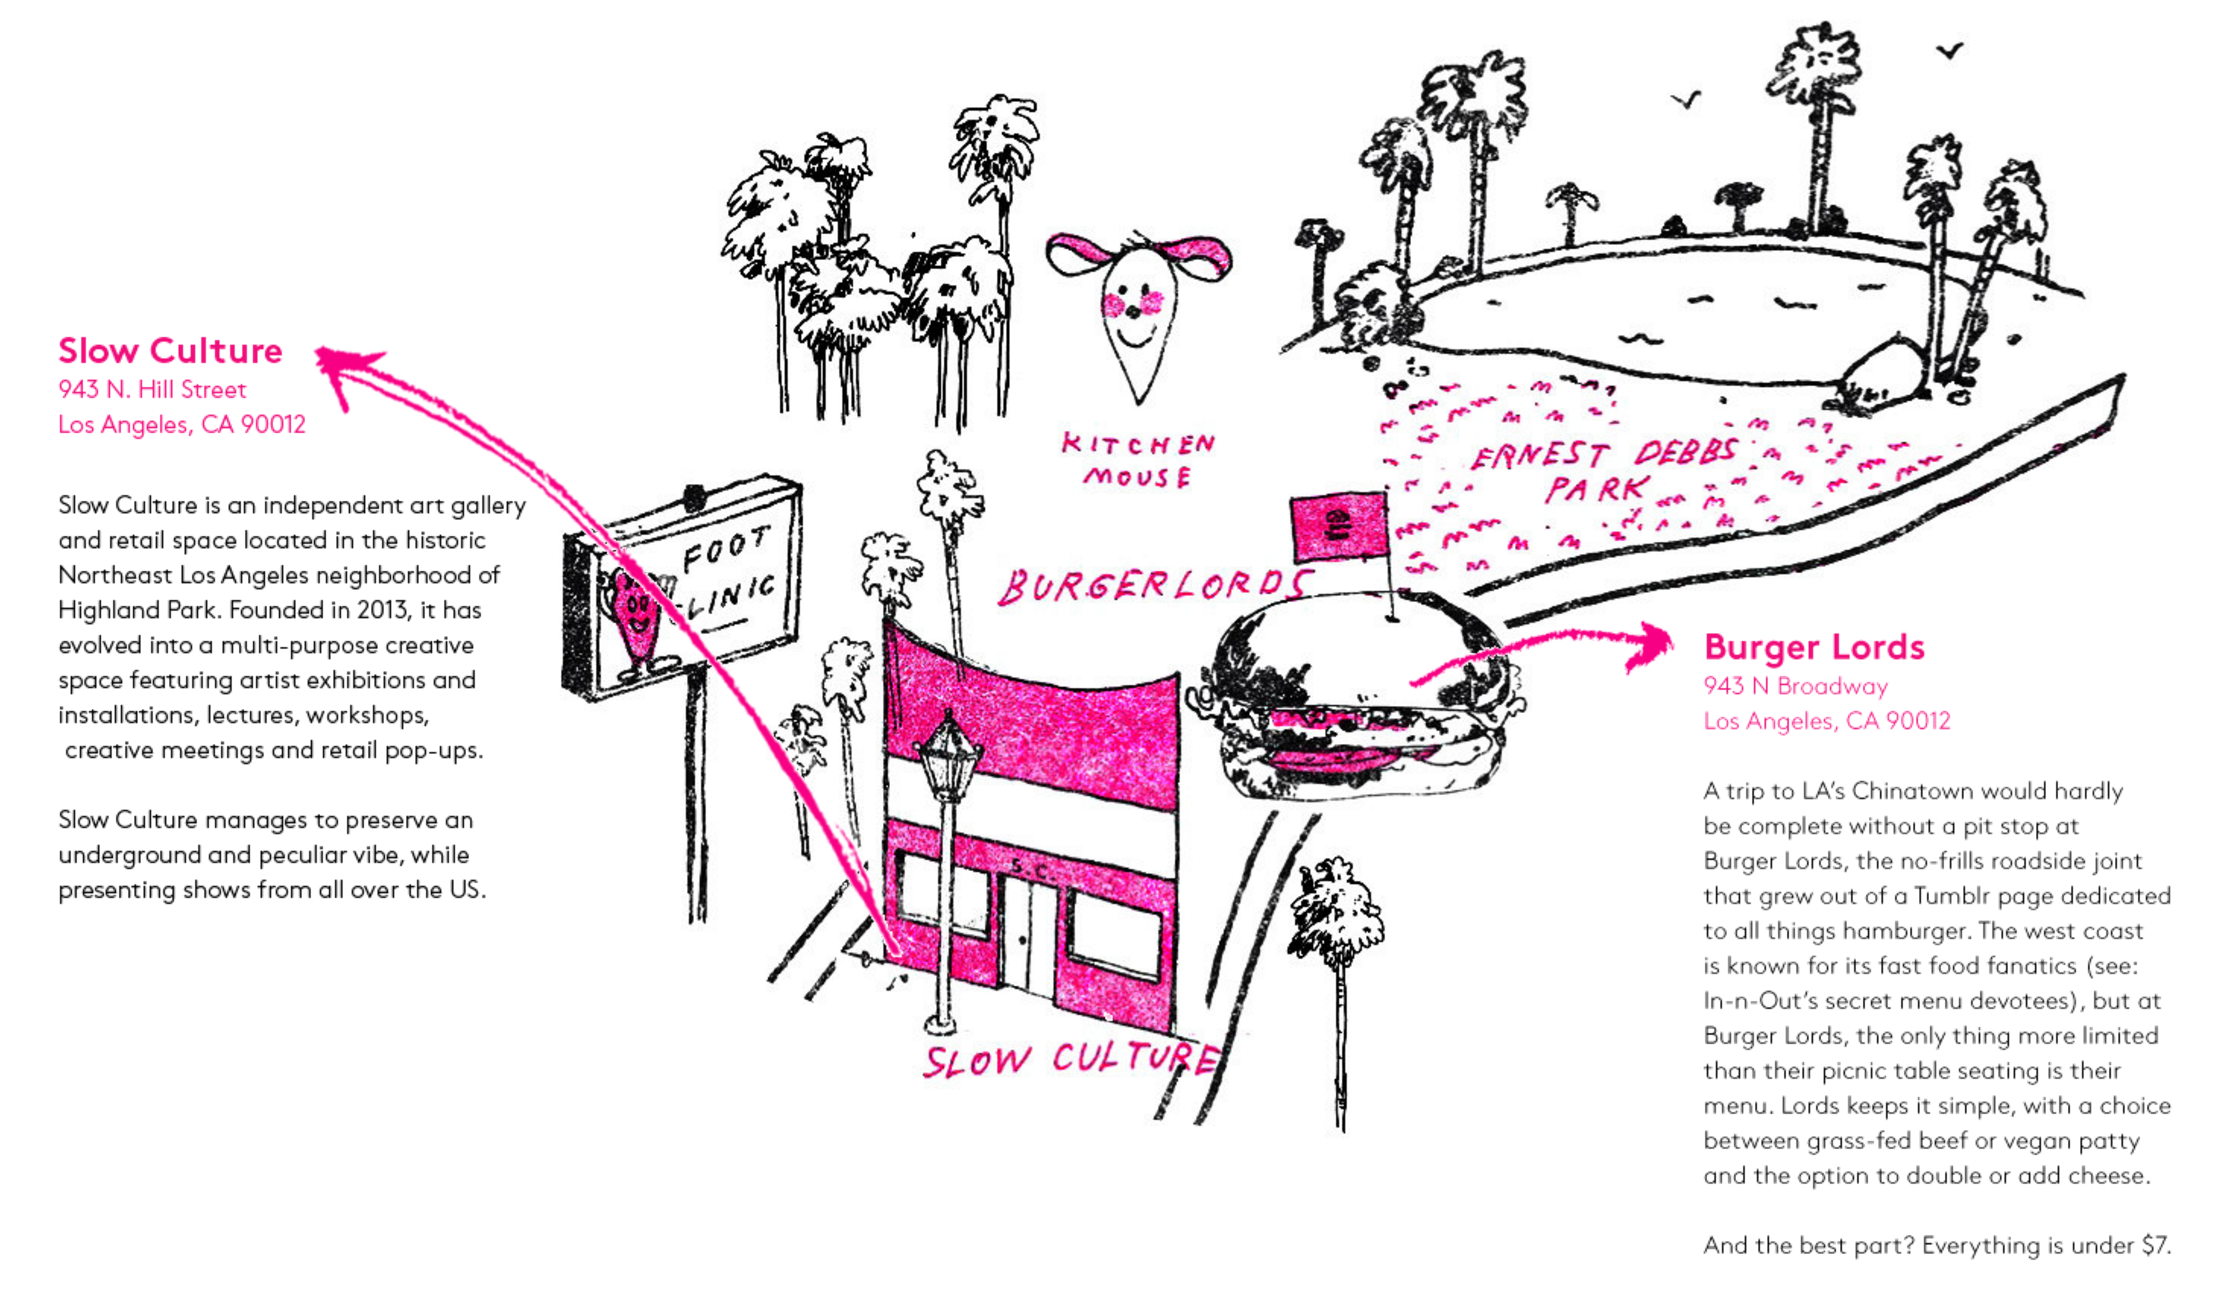 Slow Culture
943 N. Hill Street
Los Angeles, CA 90012
Slow Culture is an independent art gallery
and retail space located in the historic
Northeast Los Angeles neighborhood of
Highland Park. Founded in 2013, it has
evolved into a multi-purpose creative
space featuring artist exhibitions and
installations, lectures, workshops,
creative meetings and retail pop-ups.
Slow Culture manages to preserve an
underground and peculiar vibe, while
presenting shows from all over the US.
FOOT
LINIC
KITCHEN
MOUSE
ERNEST DEBBS
PARK
BURGERLORDS
S.C.
SLOW CULTURE
Burger Lords
943 N Broadway
Los Angeles, CA 90012
A trip to LA's Chinatown would hardly
be complete without a pit stop at
Burger Lords, the no-frills roadside joint
that grew out of a Tumblr page dedicated
to all things hamburger. The west coast
is known for its fast food fanatics (see:
In-n-Out's secret menu devotees), but at
Burger Lords, the only thing more limited
than their picnic table seating is their
menu. Lords keeps it simple, with a choice
between grass-fed beef or vegan patty
and the option to double or add cheese.
And the best part? Everything is under $7.